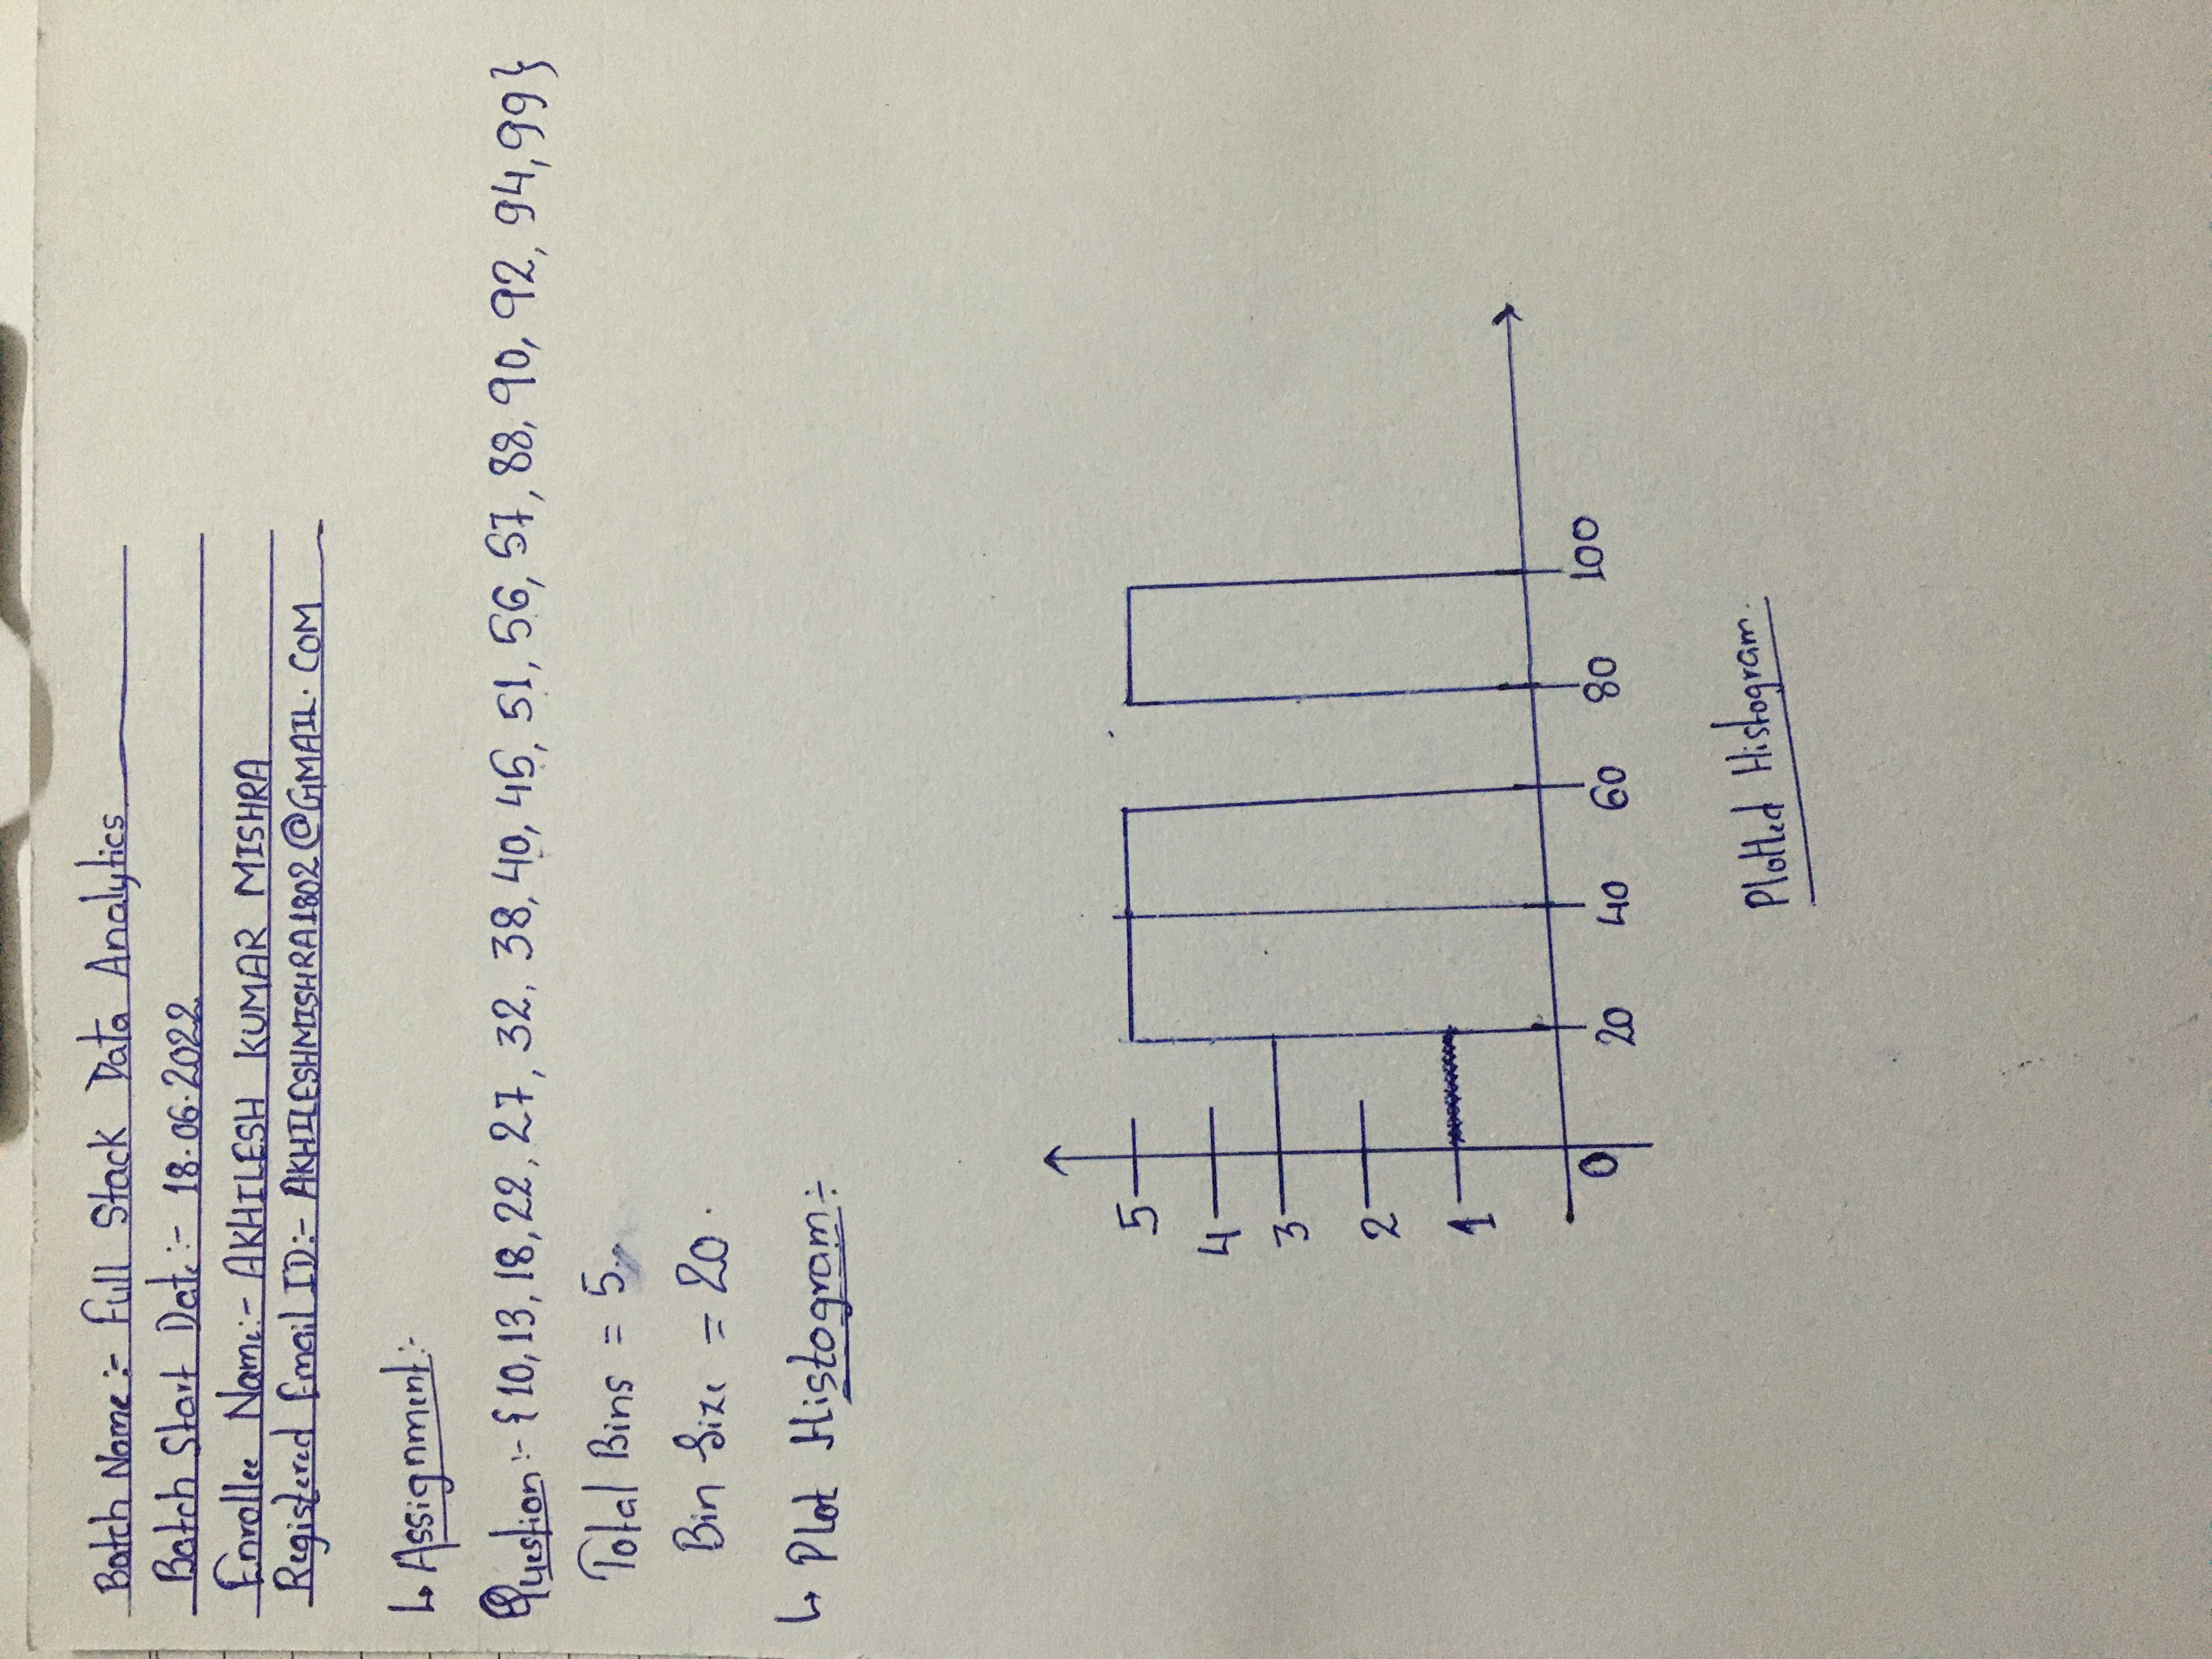 Batch Name:- Full Stack Data Analytics
Batch Start Date:- 18.06.2022
Enrollee Name:- AKHILESH KUMAR MISHRA
Registered Email ID:- AKHILESHMISHRA1802@GMAIL.COM
↳ Assignment:-
Question:- {10, 13, 18, 22, 27, 32, 38, 40, 45, 51, 56, 57, 88, 90, 92, 94, 99}
Total Bins = 5
Bin Size = 20.
↳ Plot Histogram:-
5
4
3
2
1
0 20 40 60 80 100
Plotted Histogram.